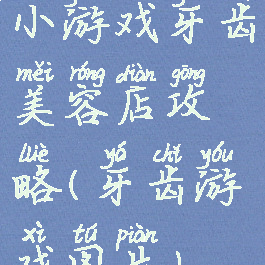 小游戏牙齿
měi róng diàn gōng
美容店攻
lüè yá chǐ yóu
略(牙齿游
xì tú piàn
戏图片)